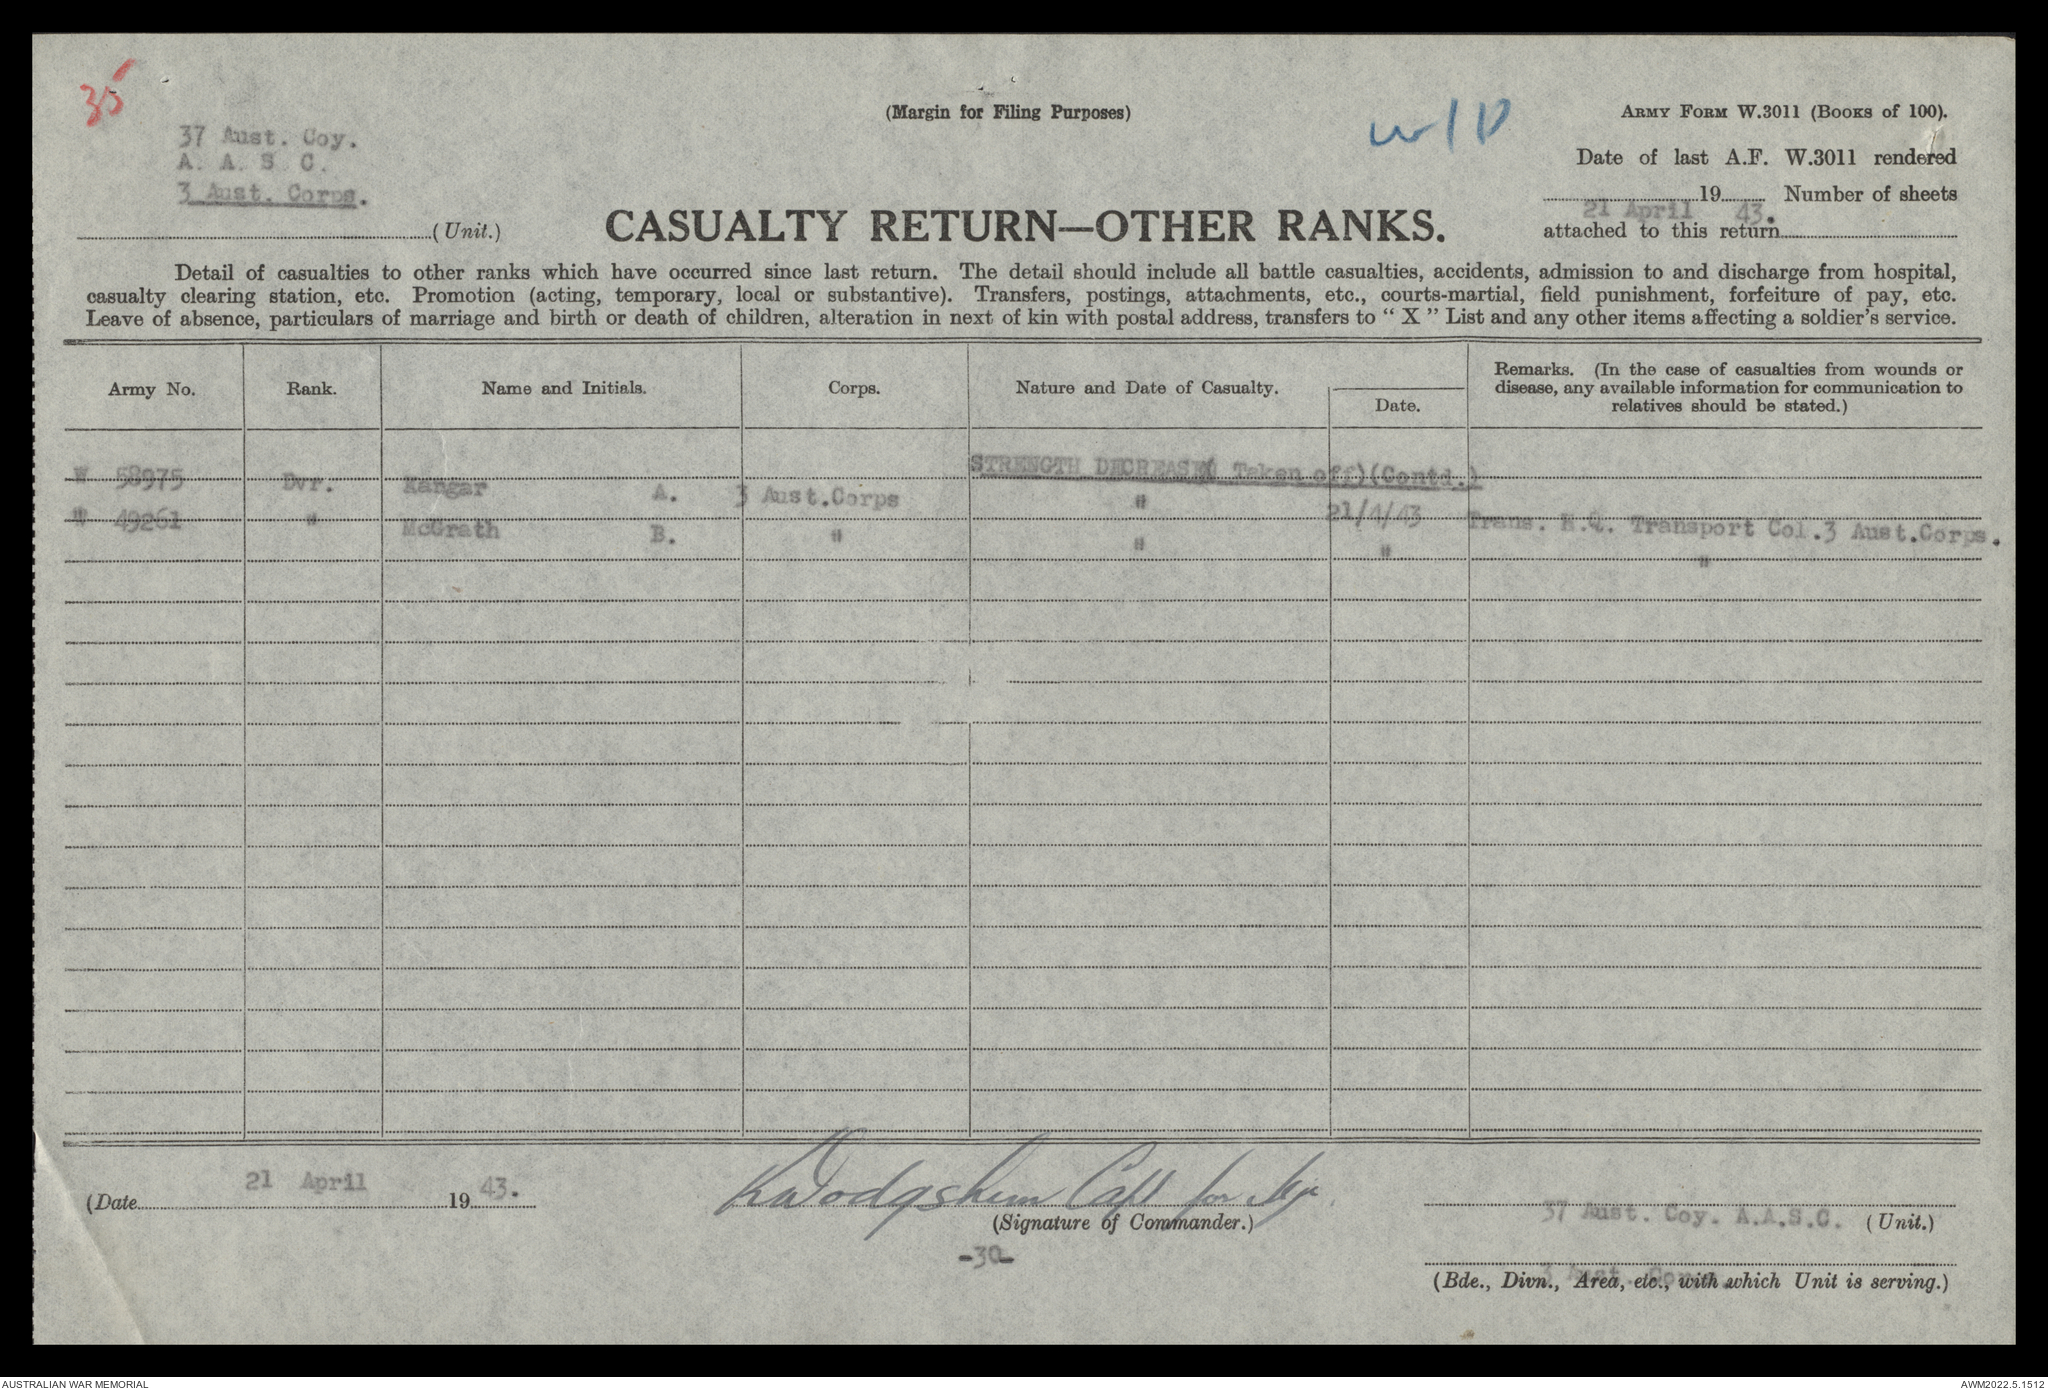 35
37 Aust. Coy.
A. A. S. C.
3 Aust. Corps.
(Unit.)
(Margin for Filing Purposes)
w/D
ARMY FORM W.3011 (BOOKS OF 100).
Date of last A.F. W.3011 rendered
21 April 1943. Number of sheets
attached to this return
CASUALTY RETURN—OTHER RANKS.
Detail of casualties to other ranks which have occurred since last return. The detail should include all battle casualties, accidents, admission to and discharge from hospital,
casualty clearing station, etc. Promotion (acting, temporary, local or substantive). Transfers, postings, attachments, etc., courts-martial, field punishment, forfeiture of pay, etc.
Leave of absence, particulars of marriage and birth or death of children, alteration in next of kin with postal address, transfers to “ X ” List and any other items affecting a soldier's service.
Army No. Rank. Name and Initials. Corps. Nature and Date of Casualty. Date. Remarks. (In the case of casualties from wounds or
disease, any available information for communication to
relatives should be stated.)
STRENGTH DECREASE( Taken off)(Contd.)
W 58975 Dvr. Rangar A. 3 Aust.Corps " 21/4/43 Trans. H.Q. Transport Col.3 Aust.Corps.
W 49261 " McGrath B. " " " "
(Date 21 April 1943.
Capt for Maj
(Signature of Commander.)
37 Aust. Coy. A.A.S.C. (Unit.)
-30-
3 Aust. Corps.
(Bde., Divn., Area, etc., with which Unit is serving.)
AUSTRALIAN WAR MEMORIAL
AWM2022.5.1512